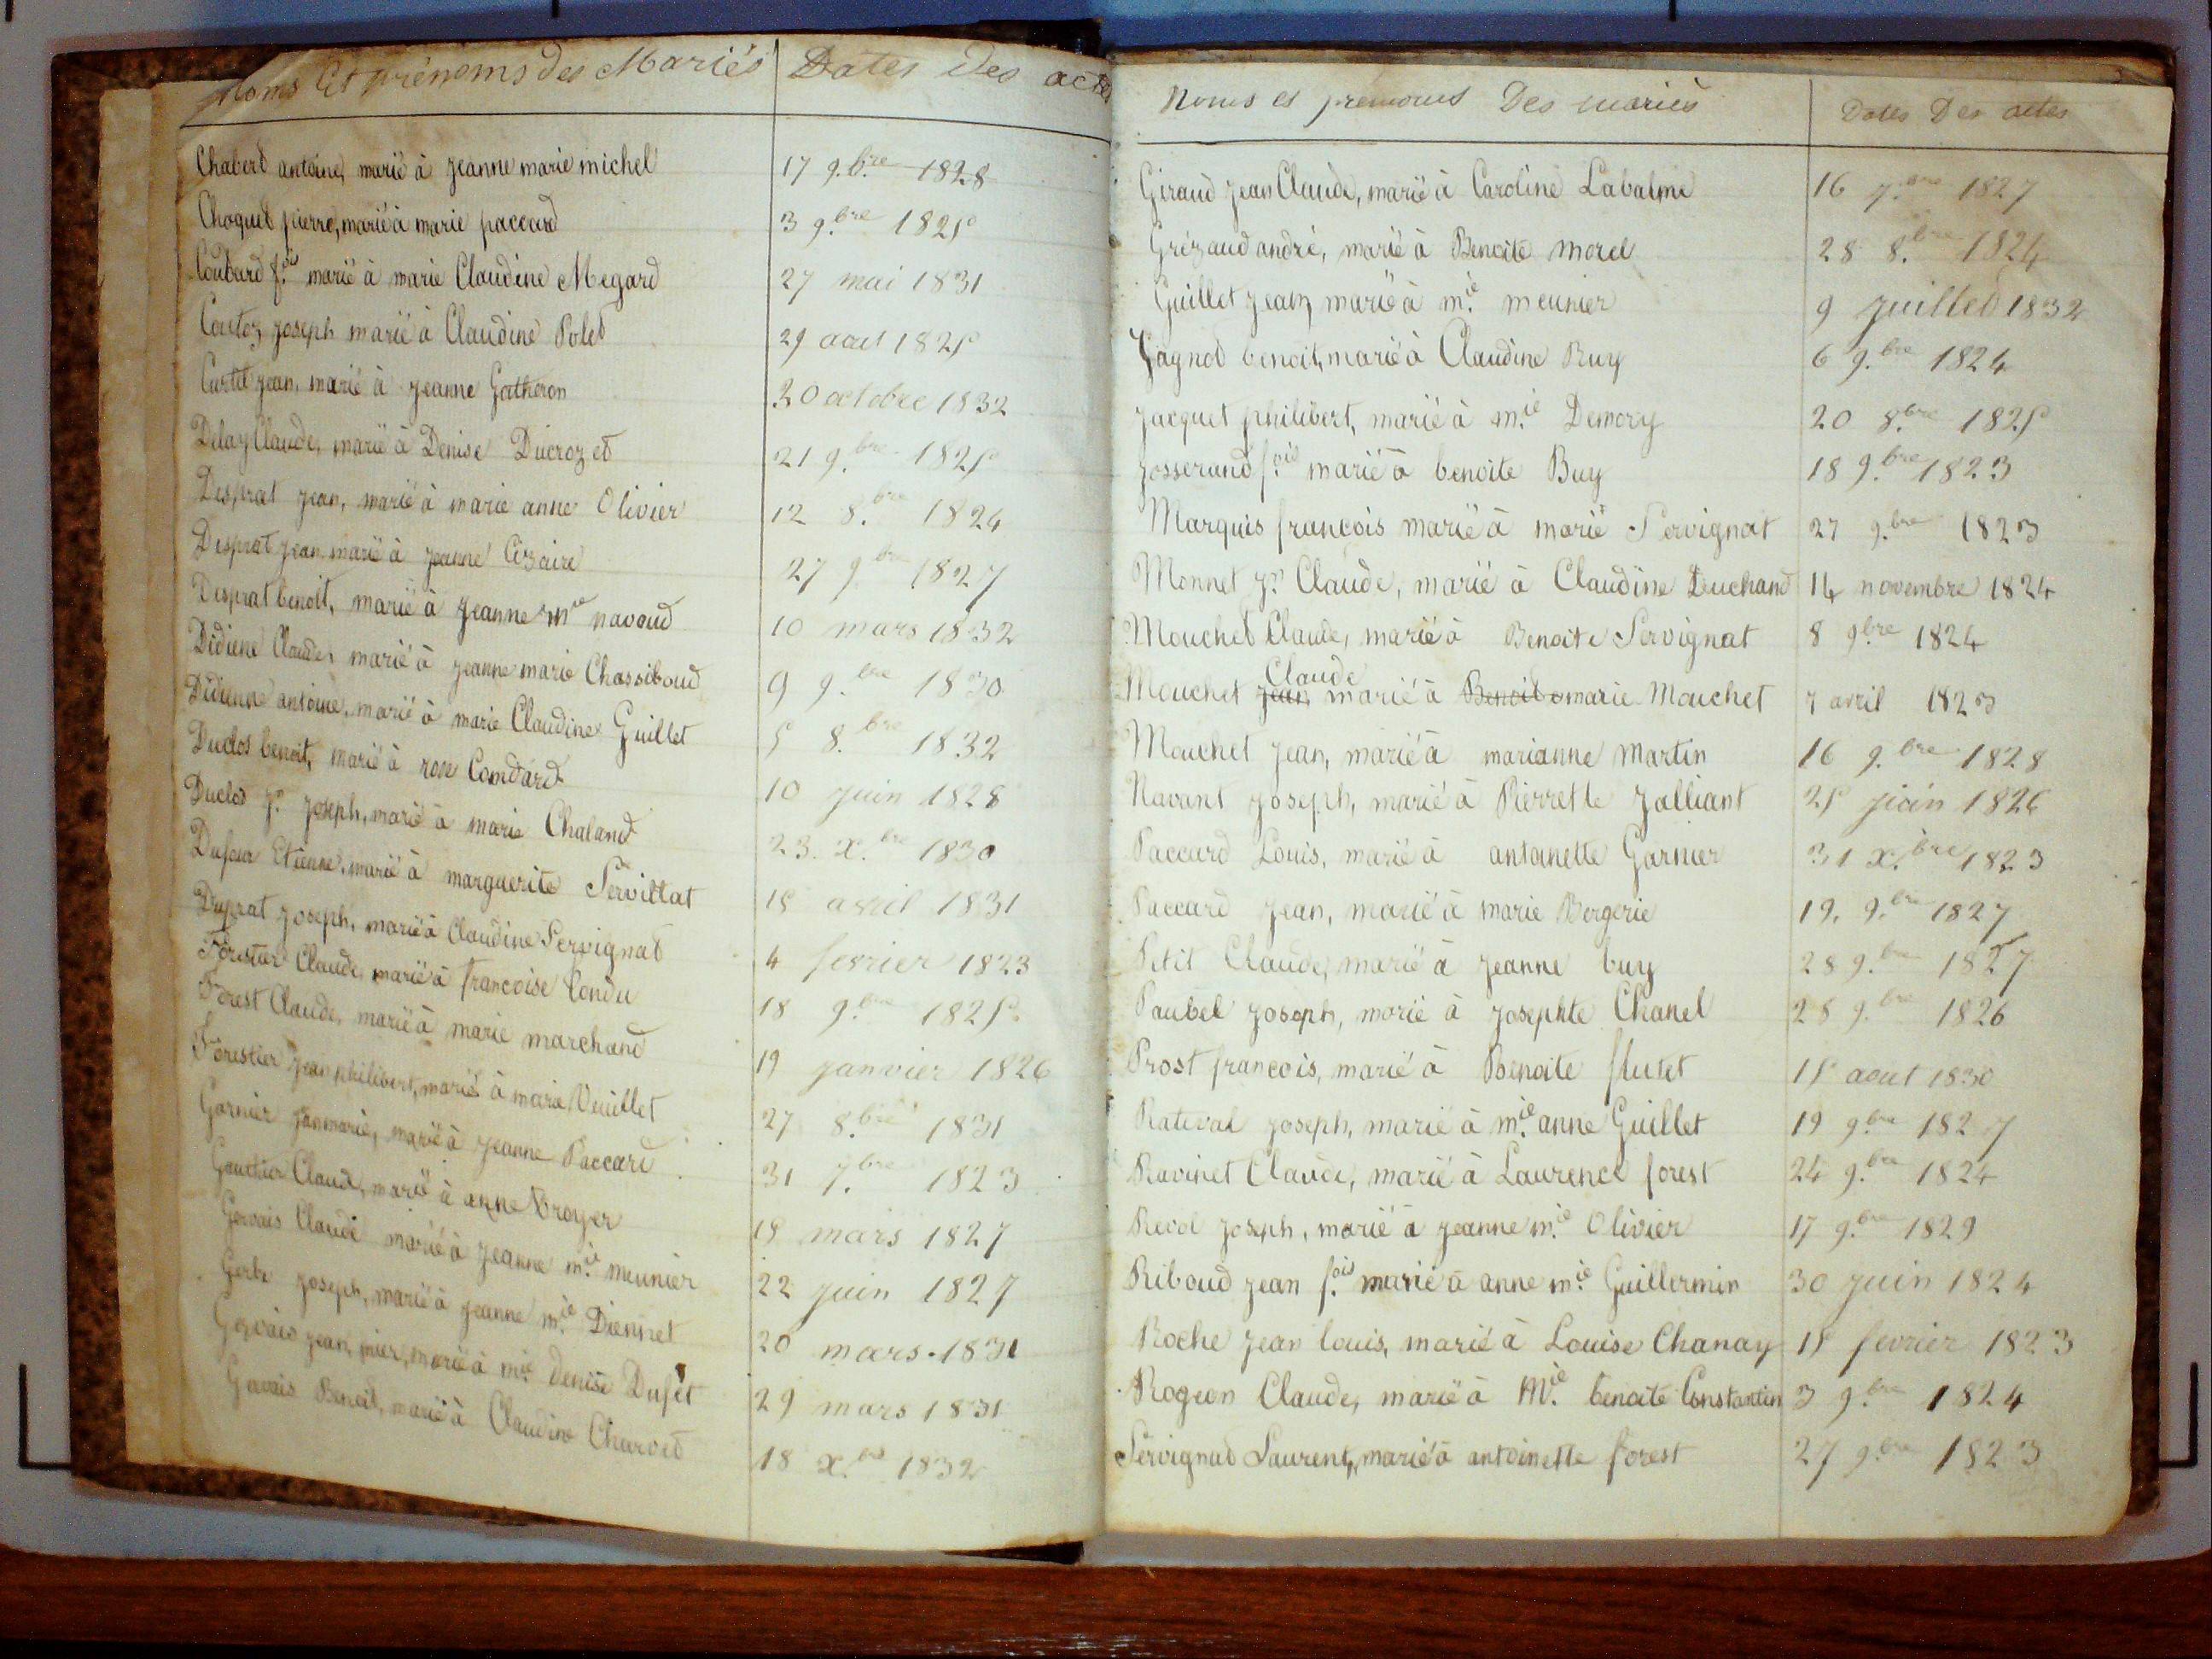 Noms Et prénoms des Mariés Dates Des actes
Chaberd antoine, marié à jeanne marie michel 17 9.bre 1828
Choquet pierre, marié à marie paccard 3 9.bre 1825
Coubard f.ois marié à marie Claudine Megard 27 mai 1831
Coutoz joseph marié à Claudine Polet 29 aout 1825
Curtil jean, marié à jeanne Gatheron 30 octobre 1832
Delay Claude, marié à Denise Ducrozet 21 9.bre 1825
Desprat jean, marié à marie anne Olivier 12 8.bre 1824
Desprat jean marié à jeanne Cizaire 27 9.bre 1827
Desprat benoit, marié à jeanne mie navoud 10 mars 1832
Didiene Claude, marié à jeanne marie Chassiboud 9 9.bre 1830
Didienne antoine, marié à marie Claudine Guillet 5 8.bre 1832
Duclos benoit, marié à rose Comdard 10 juin 1828
Duclos jn joseph, marié à marie Chaland 23. x.bre 1830
Dufour Etienne, marié à marguerite Servillat 15 avril 1831
Duprat joseph, marié à Claudine Servignat 4 fevrier 1823
Forestier Claude, marié à francoise Condu 18 9.bre 1825
Forest Claude, marié à marie marchand 19 janvier 1826
Forestier jean philibert, marié à marie Vuillet 27 8.bre 1831
Garnier janmarie, marié à jeanne Paccard 31 7.bre 1823
Gauthier Claude, marié à anne broyer 15 mars 1827
Gervais Claude marié à jeanne m.ie meunier 22 juin 1827
Gerbe joseph, marié à jeanne m.ie Diennet 20 mars 1831
Gervais jean pier, marié à mie denise Dufét 29 mars 1831
Gervais Benoit, marié à Claudine Charvet 18 x.bre 1832
Noms et prenoms Des mariés Dates Des actes
Giraud jean Claude, marié à Caroline Labalme 16 7.bre 1827
Grézaud andré, marié à Benoite morel 28 8.bre 1824
Guillet jean, marié à m.ie meunier 9 juillet 1832
Jagnot benoit, marié à Claudine Ruy 6 9.bre 1824
jacquet philibert, marié à m.ie Demory 20 8.bre 1825
josserand f.ois marié à benoite Buy 18 9.bre 1823
Marquis francois marié à marie Servignat 27 9.bre 1823
Monnet jn Claude, marié à Claudine Duchand 14 novembre 1824
Mouchet Claude, marié à Benoite Servignat 8 9bre 1824
Claude
Mouchet jean, marié à Benoite marie Mouchet 7 avril 1823
Mouchet jean, marié à marianne martin 16 9.bre 1828
Navant joseph, marié à Pierrette jalliant 25 juin 1826
Paccard Louis, marié à antoinette Garnier 31 x.bre 1823
Paccard jean, marié à marie Bergerie 19. 9.bre 1827
Petit Claude, marié à jeanne buy 28 9.bre 1827
Paubel joseph, marié à josephte Chanel 28 9.bre 1826
Prost francois, marié à Benoite flutet 15 aout 1830
Rateval joseph, marié à m.ie anne Guillet 19 9.bre 1827
Ravinet Claude, marié à Laurence forest 24 9.bre 1824
Revol joseph, marié à jeanne m.ie Olivier 17 9.bre 1829
Riboud jean f.ois marié à anne m.ie Guillermin 30 juin 1824
Roche jean louis, marié à Louise Chanay 15 fevrier 1823
Rogeon Claude, marié à M.ie benoite Constantin 3 9.bre 1824
Servignad Laurent, marié à antoinette forest 27 9.bre 1823